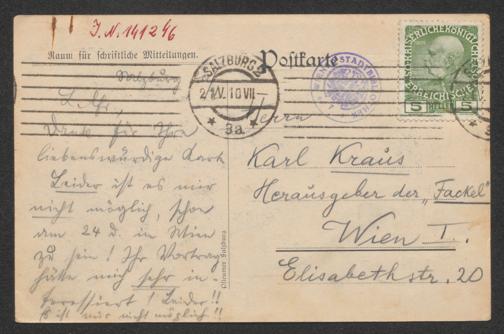 I.N. 141246
Raum für schriftliche Mitteilungen.
Postkarte
SALZBURG 2
2/V. 10 VII
* 3a *
WIENER STADTBIBLIOTHEK
5 HELLER 5
Salzburg
Danke für Ihre
liebenswürdige Karte
Leider ist es mir
nicht möglich, schon
am 24 d. in Wien
zu sein! Ihr Vortrag
hätte mich sehr in-
teressiert! Leider!!
ist mir nicht möglich!!
Herrn
Karl Kraus
Herausgeber der „Fackel"
Wien I.
Elisabethstr. 20